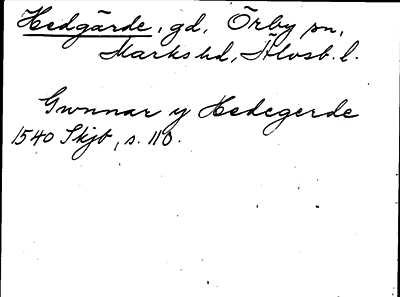 Hedgärde, gd, Örby sn,
Marks hd, Älvsb. l.
Gwnnar y Hedegerde
1540 Skjb, s. 110.